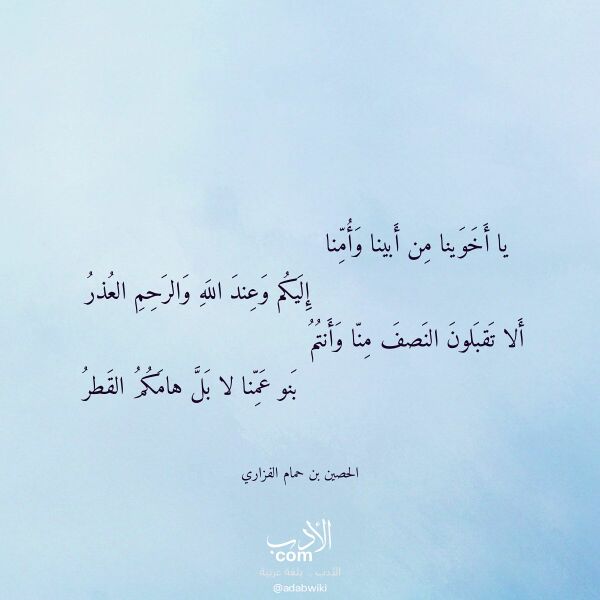 يا أَخَوَينا مِن أَبينا وَأُمِّنا
إِلَيكُم وَعِندَ اللَهِ وَالرَحِمِ العُذرُ
أَلا تَقبَلونَ النَصفَ مِنّا وَأَنتُمُ
بَنو عَمِّنا لا بَلَّ هامَكُمُ القَطرُ
الحصين بن حمام الفزاري
الأدب
com
الأدب .. بلغة عربية
@adabwiki